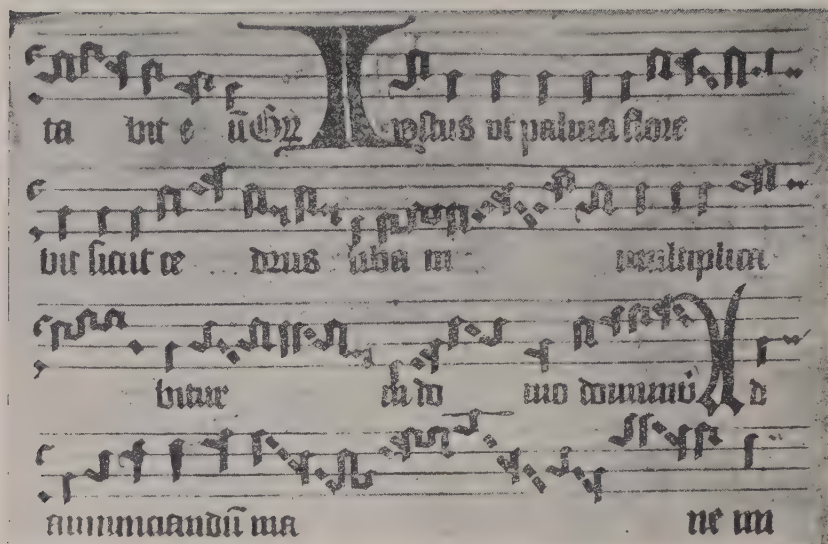 ta vit e ũ Gr̃ Iustus vt palma flore
bit sicut ce drus liba ni multiplica
bitur in do mo domini ℣ A d
annunciandũ ma ne mi